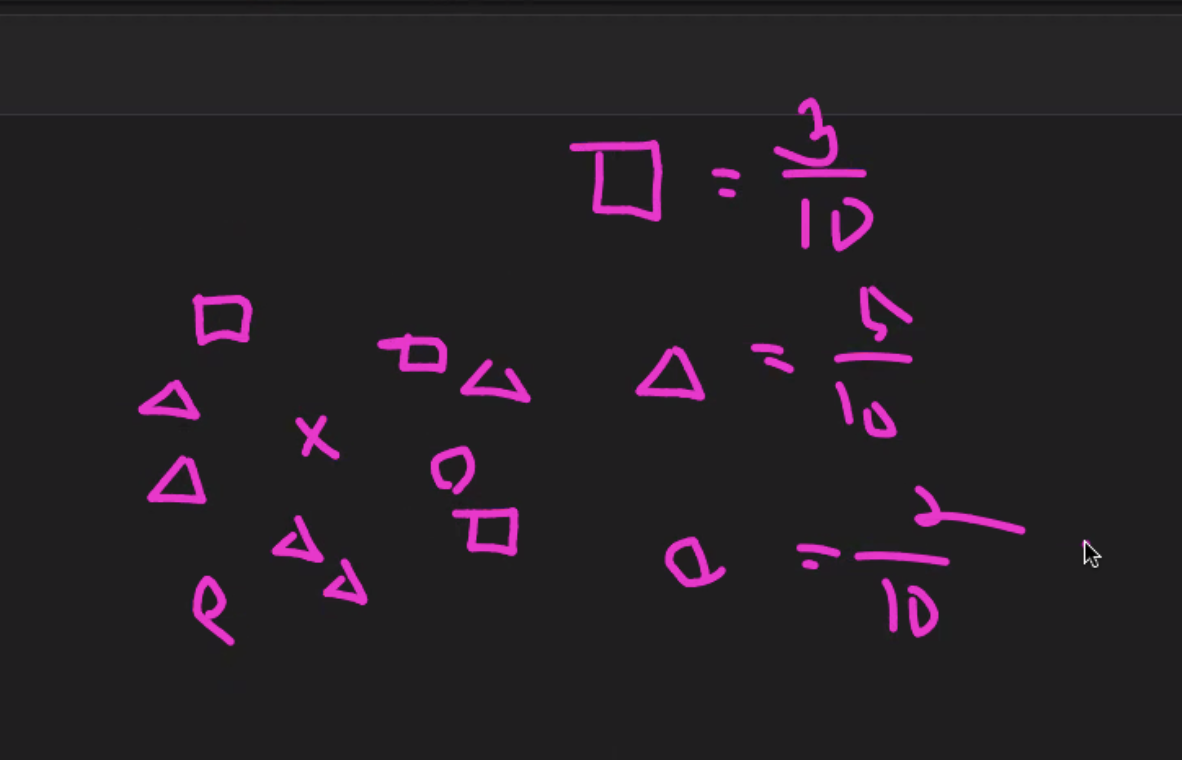 □ = 3/10
△ = 5/10
x
○ = 2/10